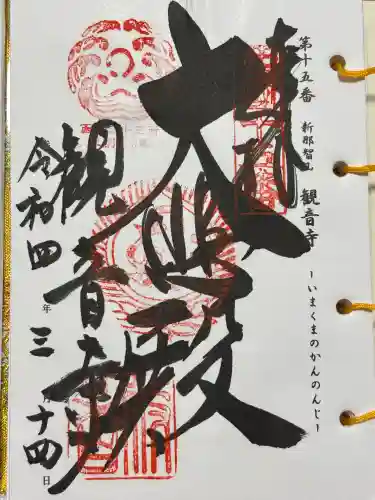 第十五番 新那智山 観音寺
-いまくまのかんのんじ-
奉拝
大悲殿
観音寺
令和四年三月十四日